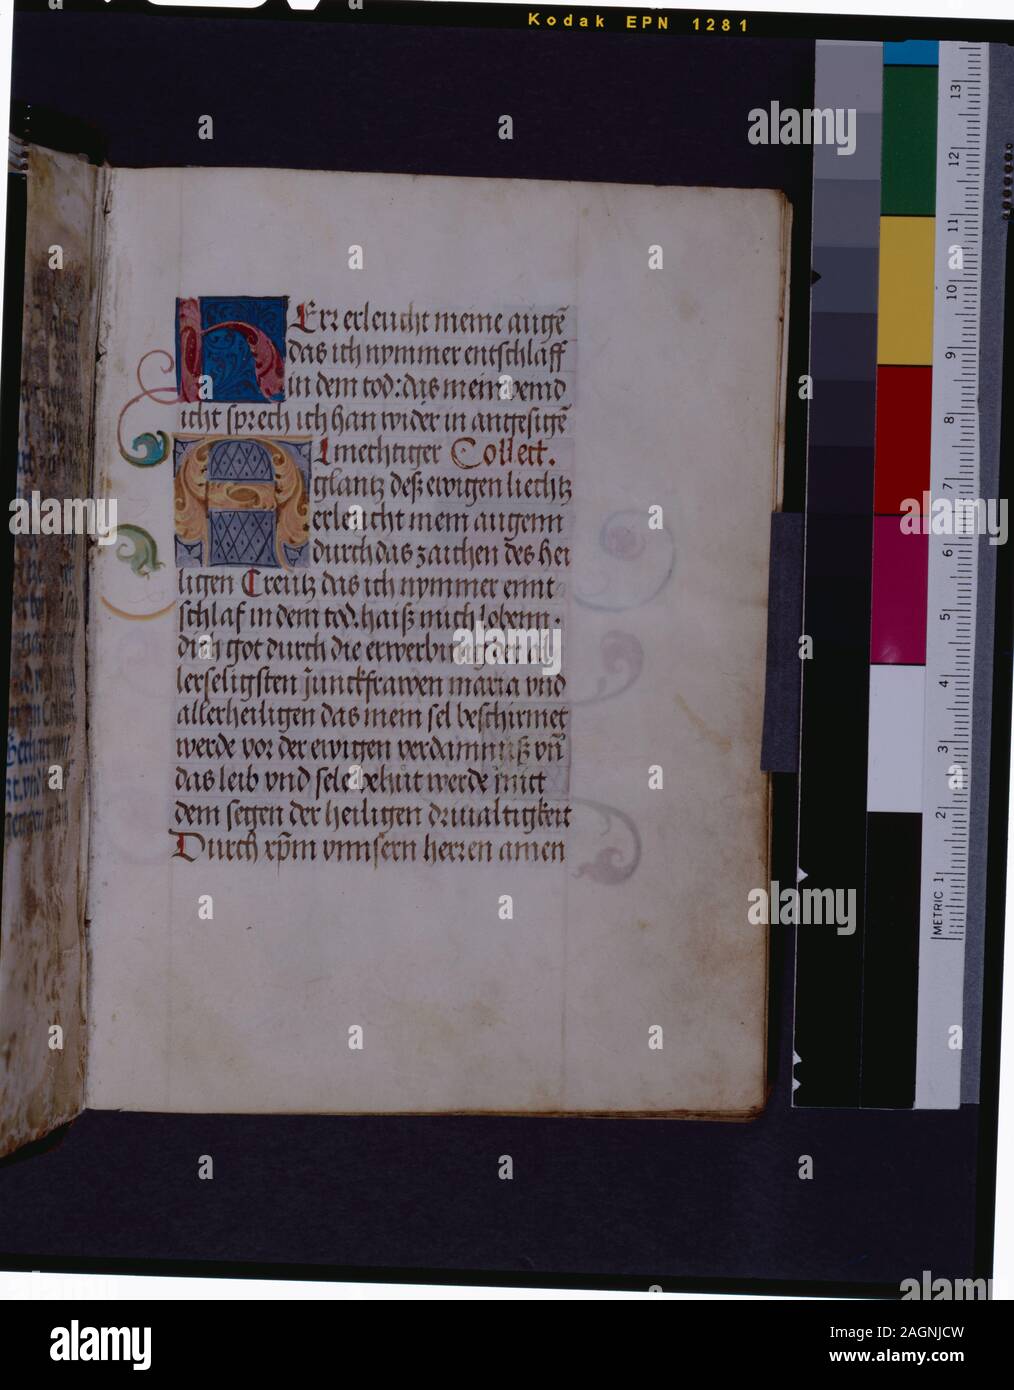 Kodak EPN 1281
HErr erleucht meine augē
das ich nymmer entschlaff
in dem tod: das mein veind
icht sprech ich han wider in angesigē
Almechtiger Collect.
glantz deß ewigen liechtz
erleucht mein augenn
durch das zaichen des hei
ligen Creutz das ich nymmer ennt
schlaf in dem tod. haiß mich lobenn
dich got durch die erwerbung der al
lerseligsten junckfrawen maria vnd
allerheiligen das mein sel beschirmet
werde vor der ewigen verdamnuß vn̄
das leib vnd sele behüt werde mitt
dem segen der heiligen driualtigkeit
Durch xp̄m vnnsern herren amen
13
12
11
10
9
8
7
6
5
4
3
2
METRIC 1
alamy
alamy
alamy
alamy
alamy
Image ID: 2AGNJCW
www.alamy.com